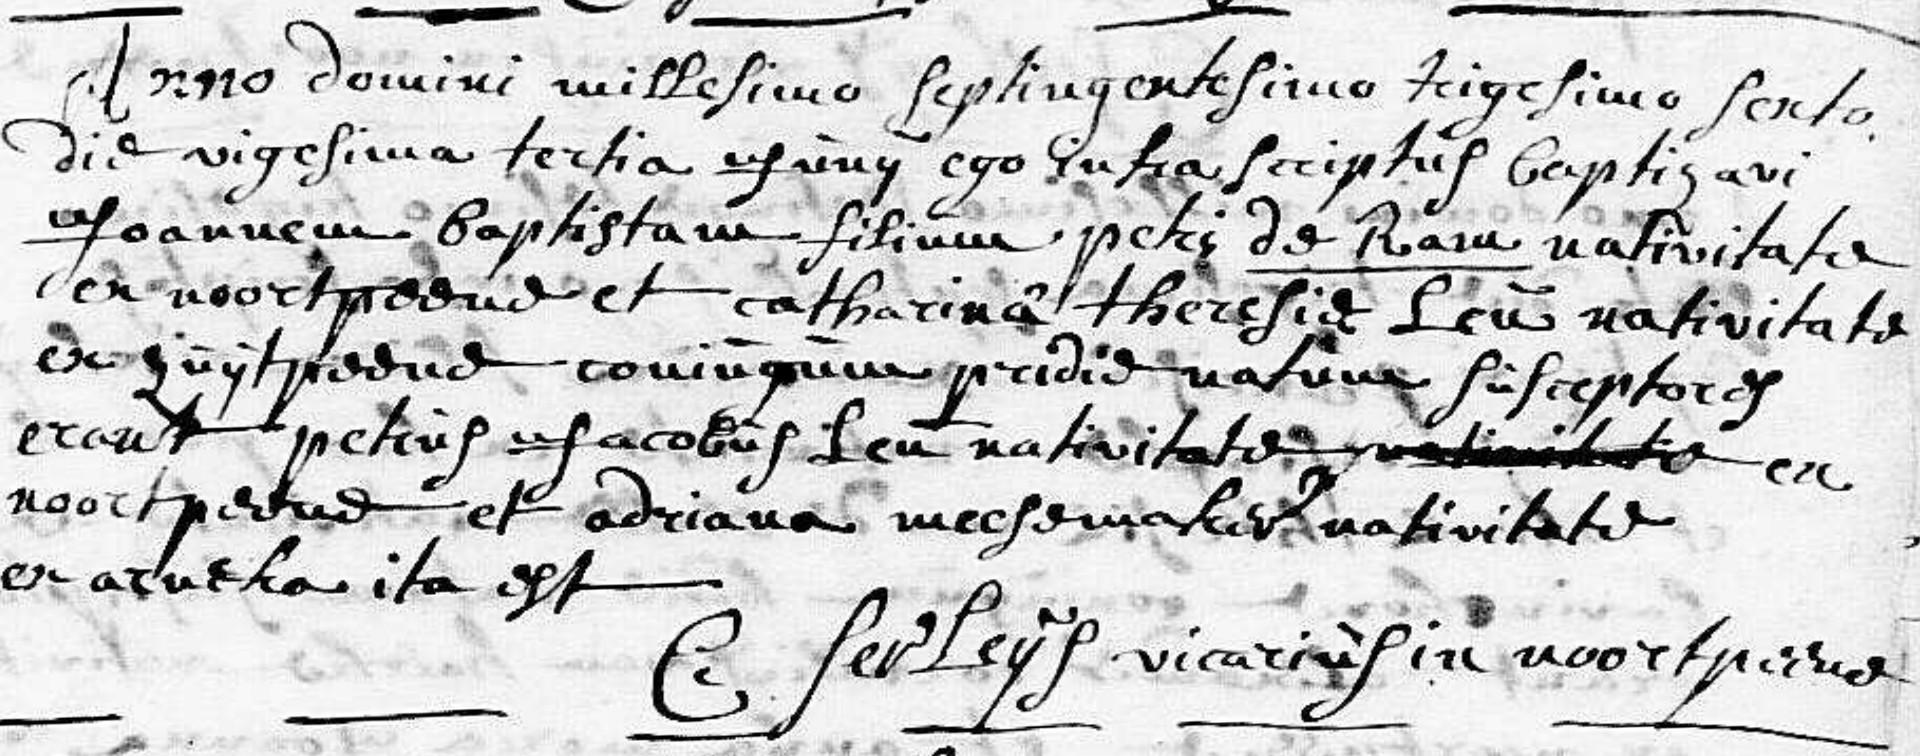 Anno domini millesimo septingentesimo trigesimo sexto
die vigesima tertia Juny ego infra scriptus baptizavi
Joannem baptistam filium petri de Ram nativitate
ex noortpeene et catharinæ theresiæ Leu nativitate
ex zuytpeene coniugum pridie natum susceptores
erant petrus Jacobus Leu nativitate nativitate ex
noortpeene et adriana meesemaker nativitate
ex arneka ita est
C SerLeys vicarius in noortpeene